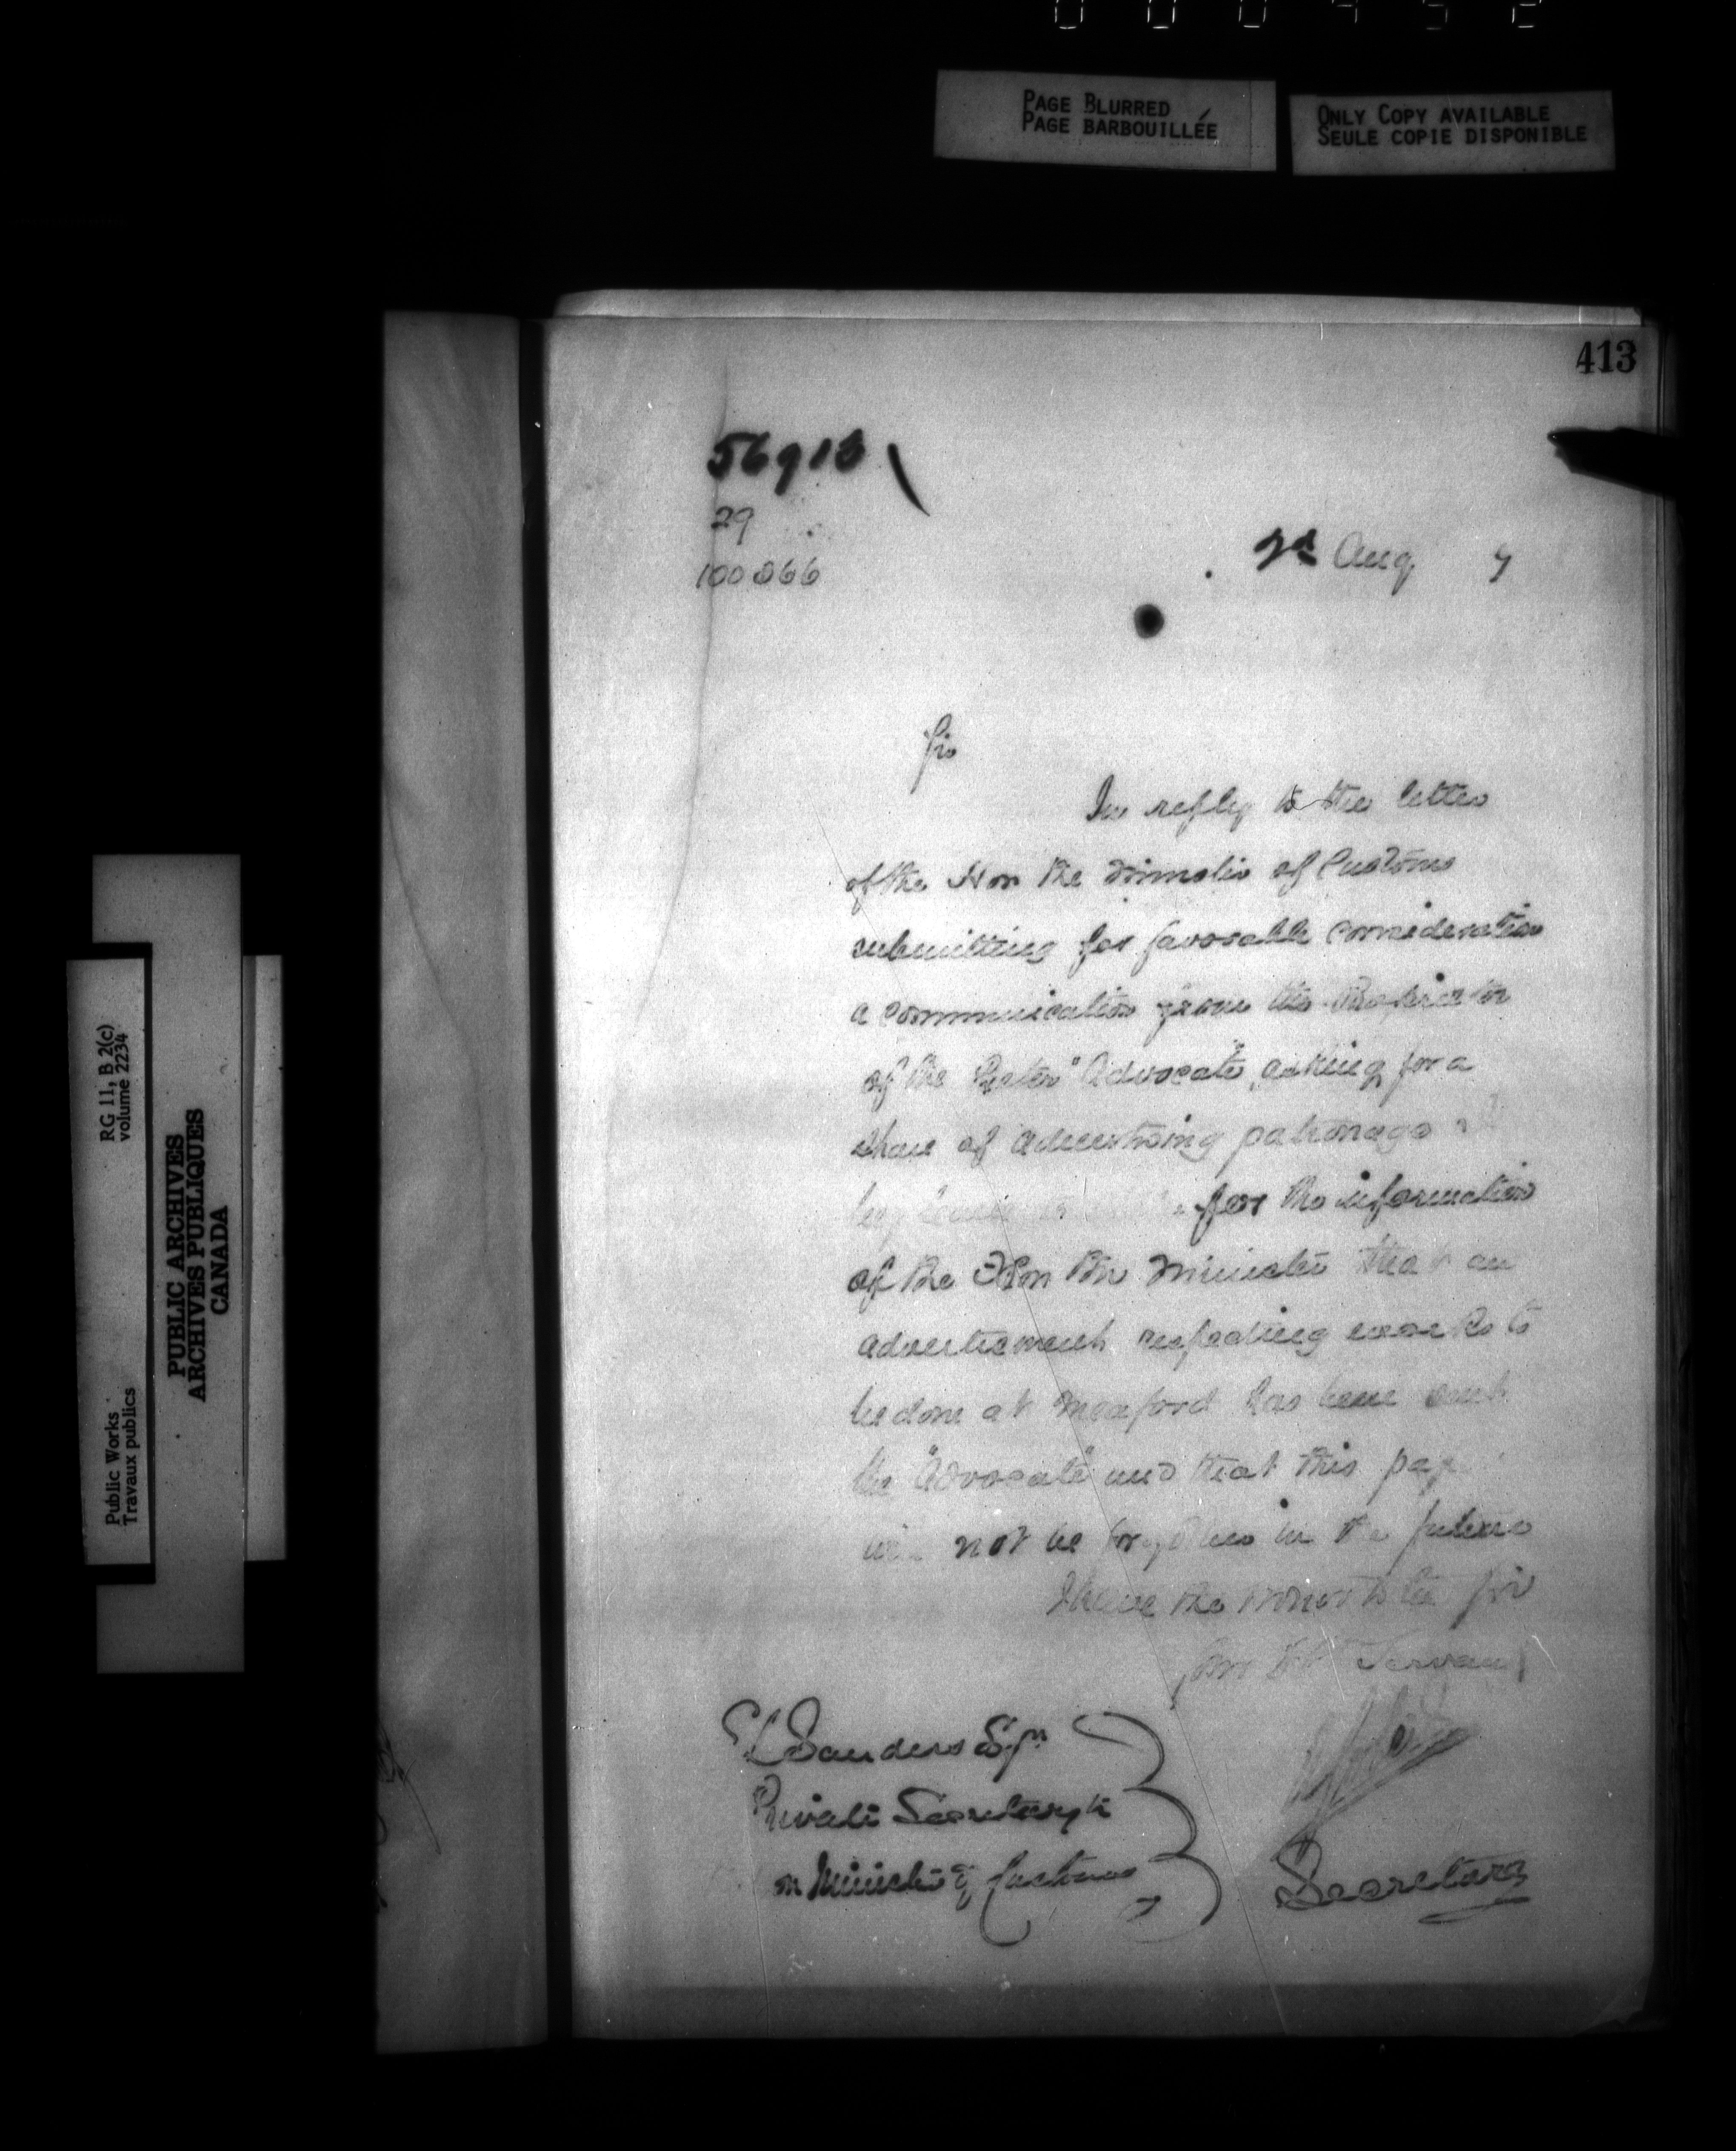 PAGE BLURRED
PAGE BARBOUILLÉE
ONLY COPY AVAILABLE
SEULE COPIE DISPONIBLE
413
56913
29
100866
2d Aug 7
Sir
In reply to the letter
of the Hon the Minister of Customs
submitting for favorable consideration
a communication from the Proprietor
of the "Advocate" asking for a
share of advertising patronage
beg for the information
of the Hon the Minister that an
advertisement respecting works to
be done at Meaford has been sent
the "Advocate" and that this pap
not be forgotten in the future
I have the honor to be Sir
Servant
Sanders Esqr
Private Secretary to
Minister of Customs
Secretary
RG 11, B 2(c)
volume 2234
Public Works
Travaux publics
PUBLIC ARCHIVES
ARCHIVES PUBLIQUES
CANADA